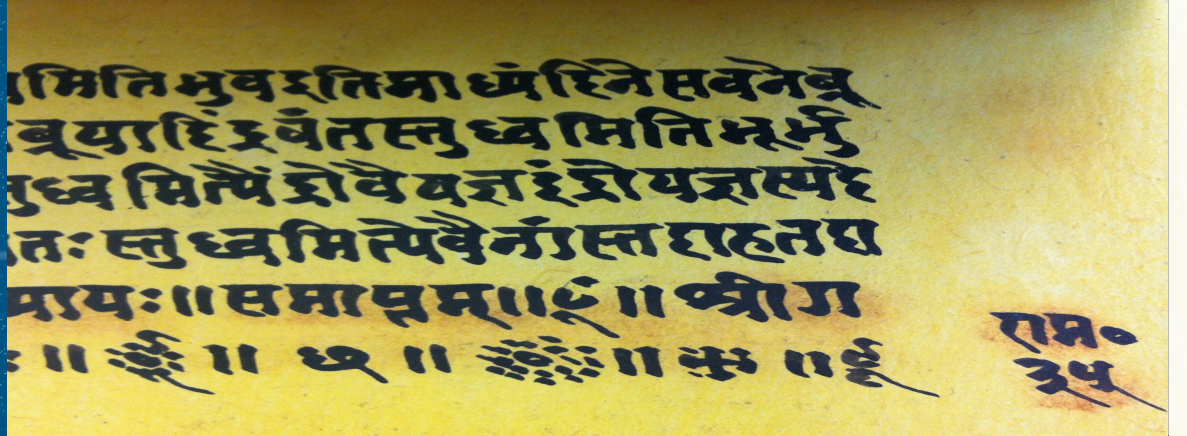 मितिभुवइतिमाध्यंदिनेसवनेब्रू
ब्रूयादिंद्रवंतस्तुध्वमितिभूर्भु
तुध्वमित्यैंद्रोवैयज्ञइंद्रोयज्ञस्यदे
तःस्तुध्वमित्येवैनांस्तदाहतदा
यः॥समाप्तम्॥९॥श्रीरा
॥ ॥ छ ॥ ॥ ॥
राम०
३५